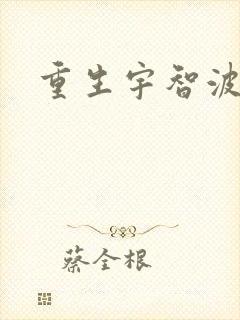 重生宇智波
蔡全根